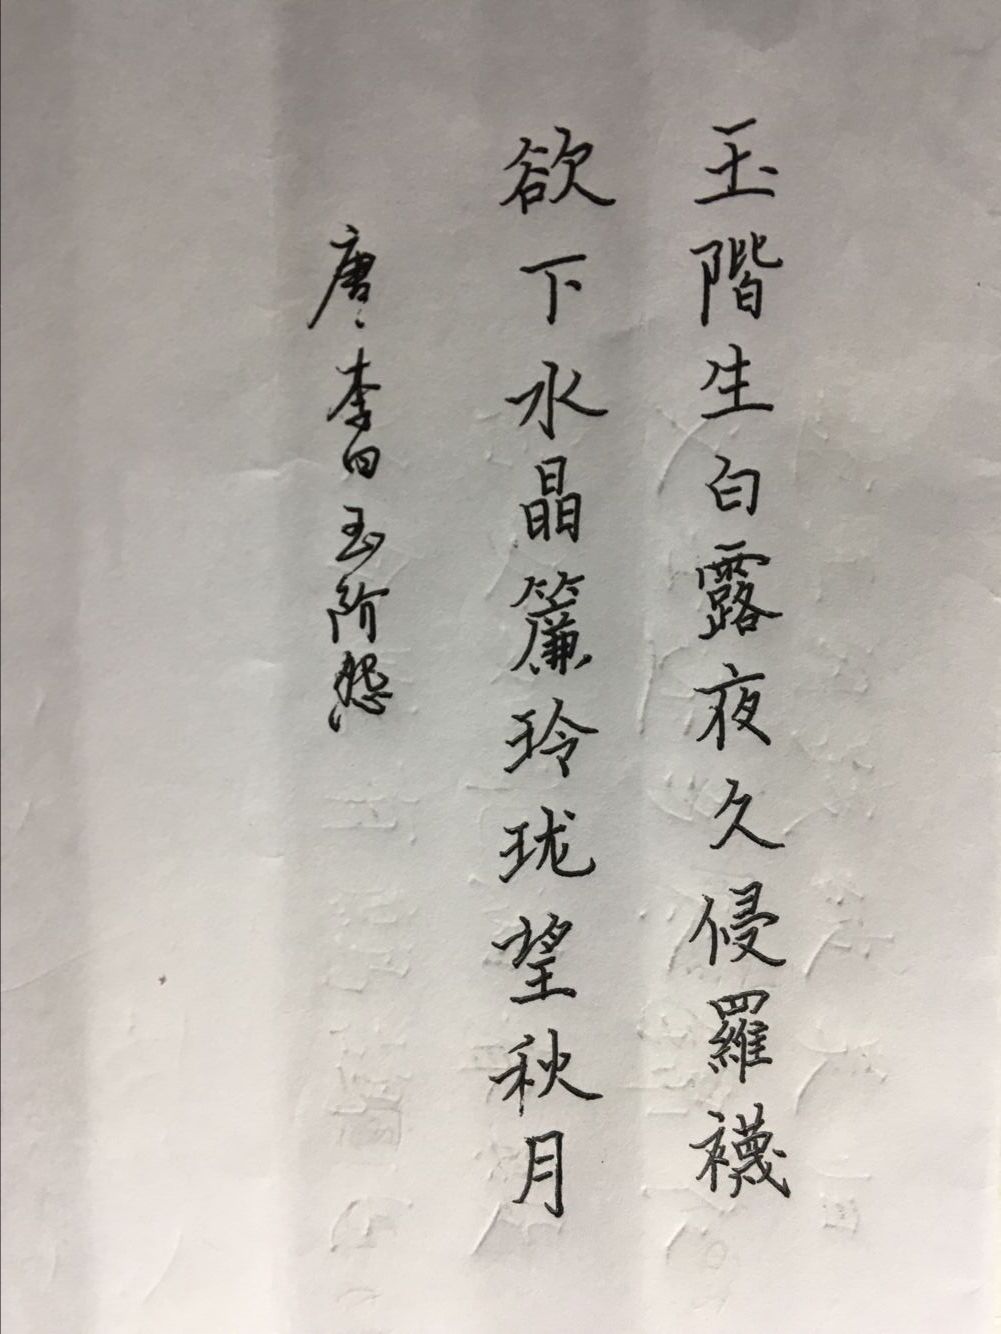 玉階生白露夜久侵羅襪
欲下水晶簾玲珑望秋月
唐、李白玉阶怨